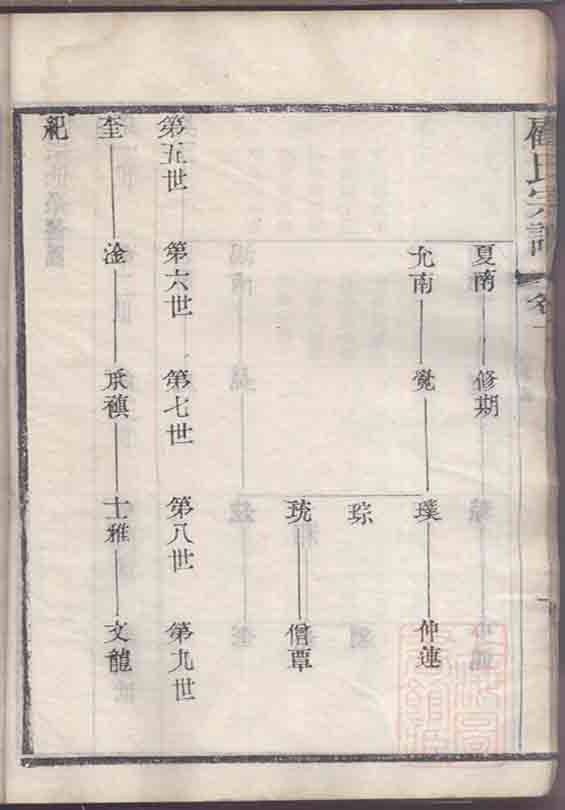 顧氏宗譜 卷一
夏南 修期
允南 覺 璞 仲蓮
琮
珫 僧覃
第五世 第六世 第七世 第八世 第九世
奎 淦 承禛 士雅 文龍
祀